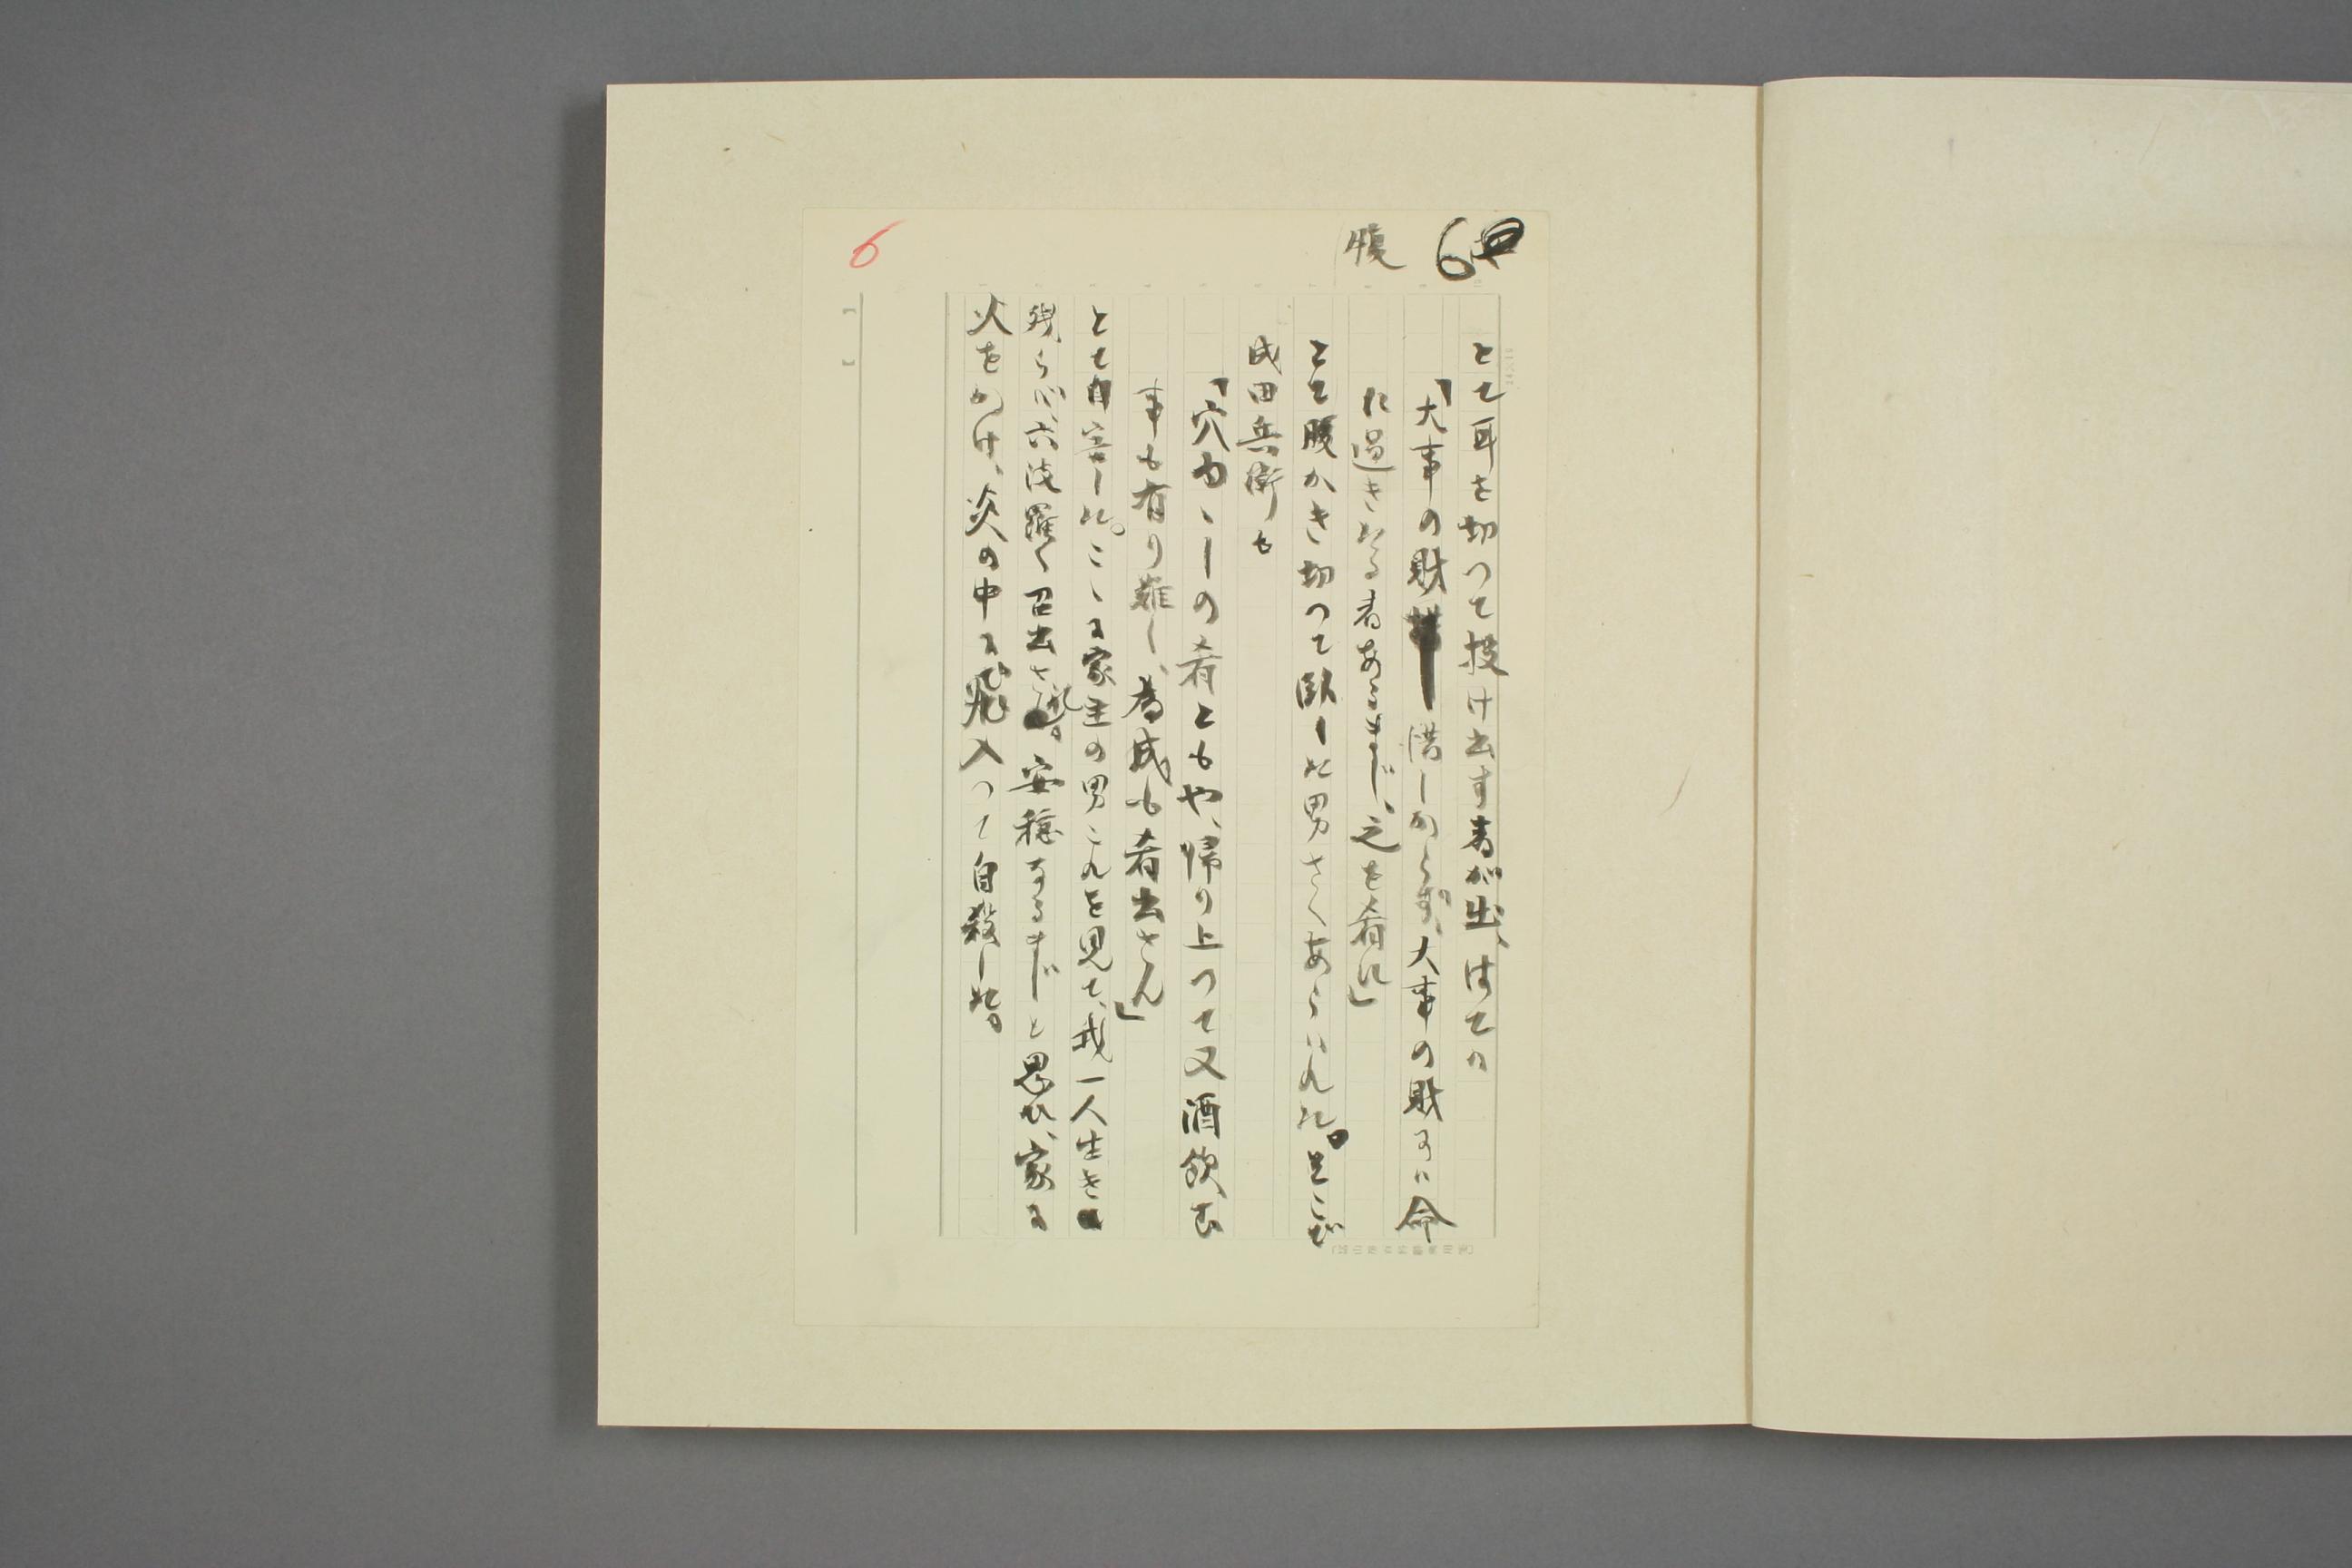 6
腹
とて耳を切つて投げ出す者が出、はては
「大事の財惜しからず、大事の財には命
に過ぎたる者あるまじ、之を肴に」
とて腹かき切つて臥した男さへあらはれた。とこが
成田兵衛も
「穴面白の肴どもや、帰り上つて又酒飲む
事も有り難し、為成も肴出さん」
とて自害した。こゝに家主の男これを見て、我一人生き
残らば六波羅へ召出され。安穏なるまじと思ひ、家に
火をかけ、炎の中に飛び入つて自殺した。
6